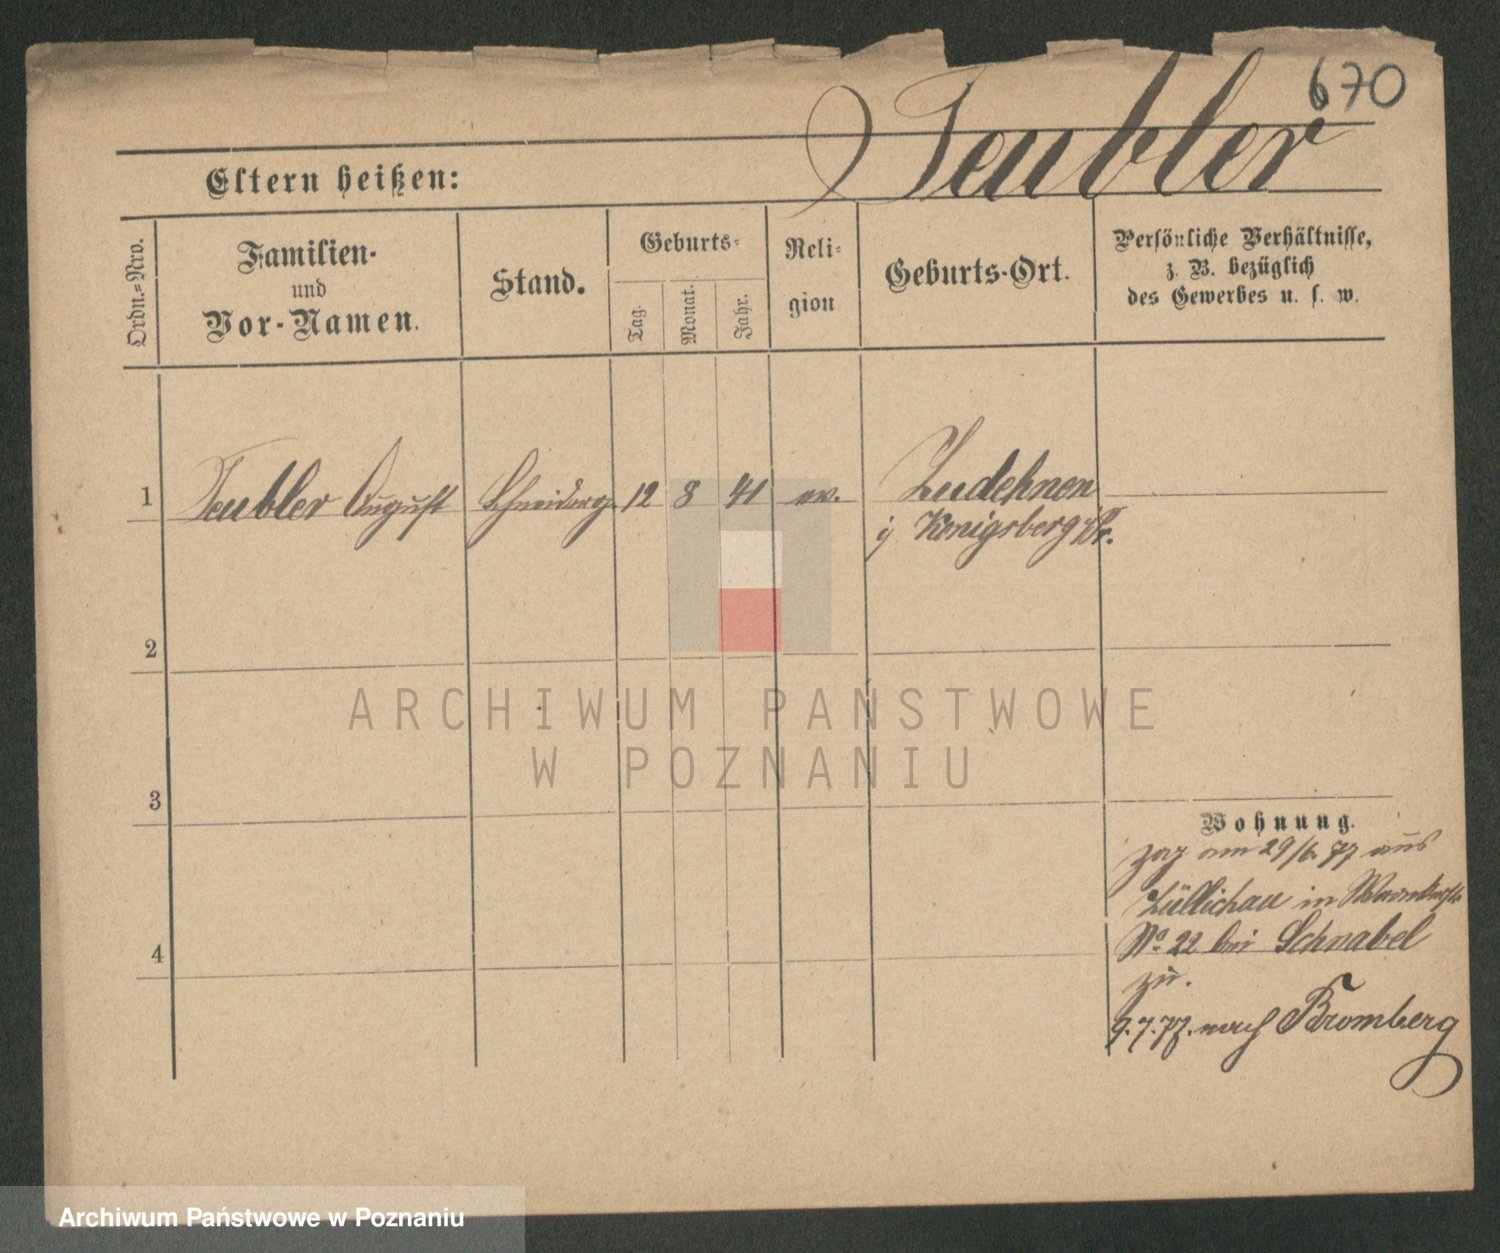 670
Teubler
Eltern heißen:
Ordn.-Nro.
Familien-
und
Vor-Namen.
Stand.
Geburts-
Tag.
Monat.
Jahr.
Reli-
gion
Geburts-Ort.
Persönliche Verhältnisse,
z. B. bezüglich
des Gewerbes u. s. w.
1 Teubler August Schneiderg. 12 8 41 ev. Ludehnen
Königsberg Pr.
2
3
4
Wohnung.
zog am 29/6 77 aus
Züllichau in
No 22 bei Schnabel
zu.
9.7.77. nach Bromberg
ARCHIWUM PAŃSTWOWE
W POZNANIU
Archiwum Państwowe w Poznaniu